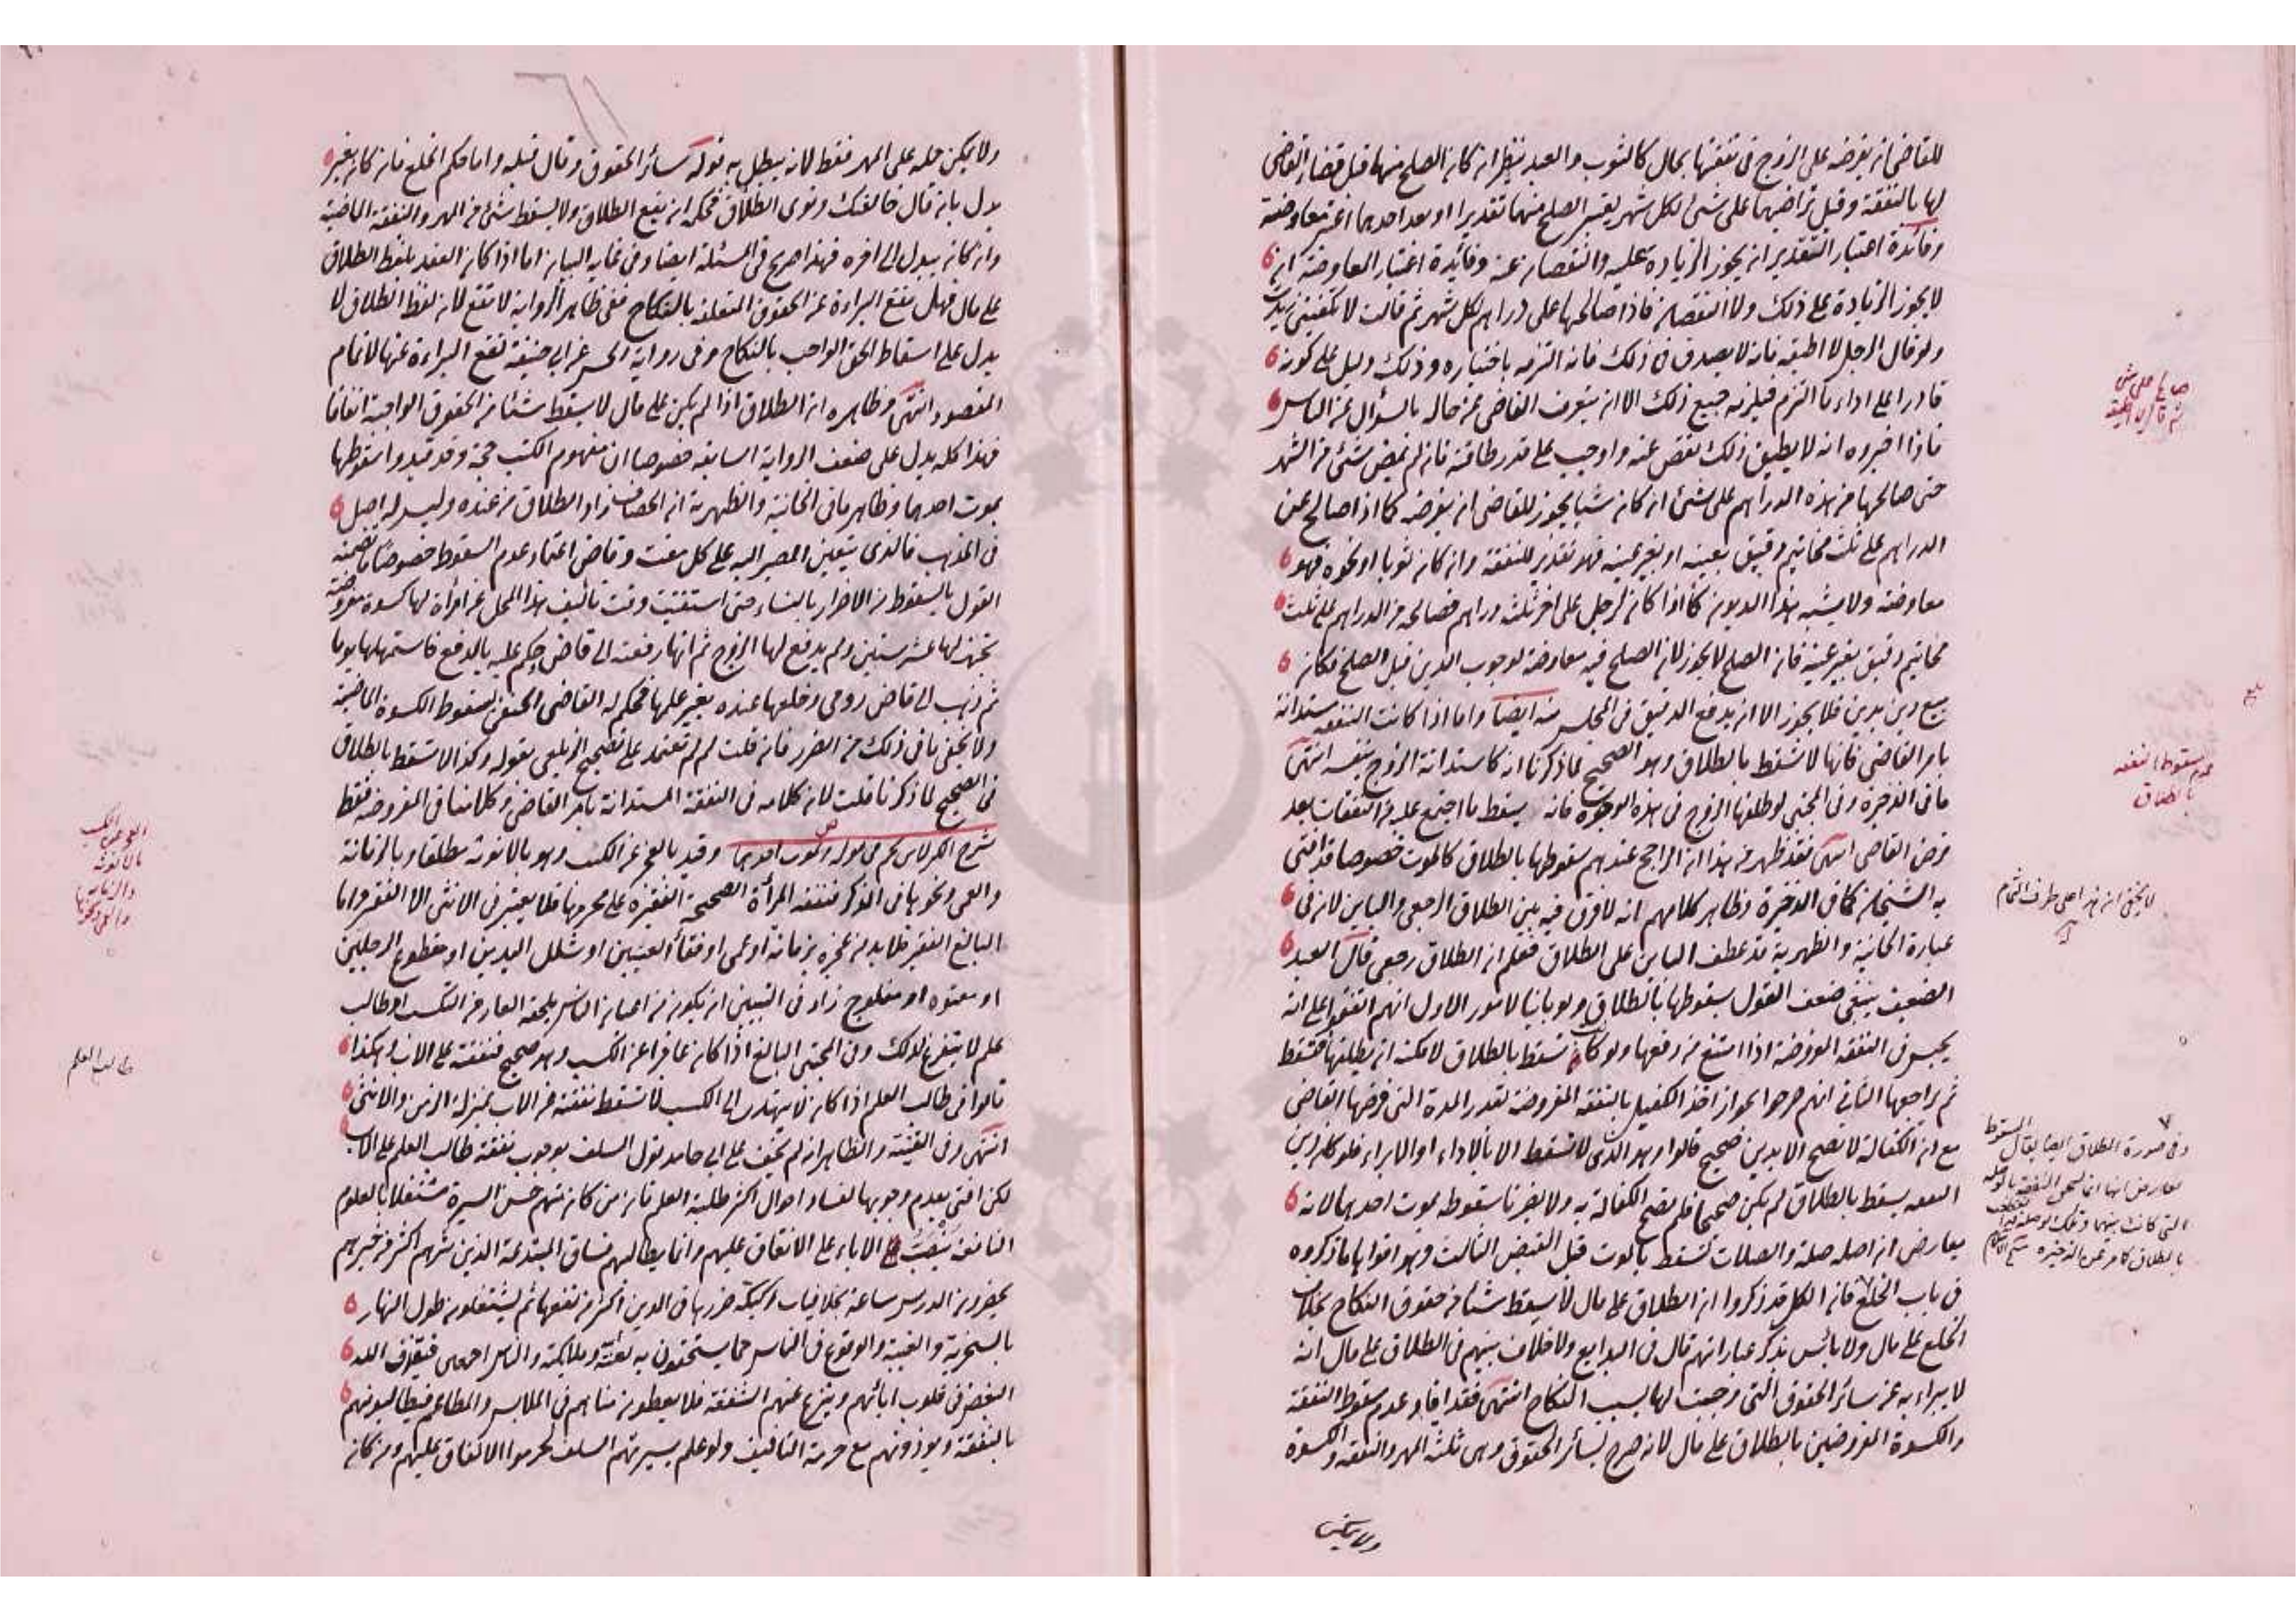 للقاضي ان يفرضه على الزوج في نفقتها بحال كالثوب والعبد ينظر ان كان الصلح منهما قبل قضاء القاضي
لها بالنفقة وقبل تراضيهما على شيء لكل شهر يعتبر الصلح منهما تقديرا او بعد احدهما اعتبر معاوضة
وفائدة اعتبار التقدير انه يجوز الزيادة عليه والنقصان عنه وفائدة اعتبار المعاوضة ان
لا يجوز الزيادة على ذلك ولا النقصان فاذا صالحها على دراهم لكل شهر ثم قالت لا تكفيني زيدت
ولو قال الرجل لا اطيقه فانه لا يصدق في ذلك فانه التزمه باختياره وذلك دليل على كونه
قادرا على اداء ما التزم فيلزمه جميع ذلك الا ان يتعرف القاضي عن حاله بالسؤال من الناس
فاذا اخبروه انه لا يطيق ذلك نقص عنه واوجب على قدر طاقته فان لم يمض شيء من الشهر
حتى صالحها من هذه الدراهم على شيء ان كان شيا يجوز للقاضي ان يفرضه كما اذا صالح عن
الدراهم على ثلث مخاتيم دقيق بعينه او بغير عينه فهو تقدير للنفقة وان كان ثوبا او نحوه فهو
معاوضة ولا يشبه هذا الديون كما اذا كان لرجل على اخر ثلثة دراهم فصالحه من الدراهم على ثلث
مخاتيم دقيق بغير عينه فان الصلح لا يجوز لان الصلح فيه معاوضة لوجوب الدين قبل الصلح فكان
بيع دين بدين فلا يجوز الا ان يدفع الدقيق في المجلس منه ايضا واما اذا كانت النفقة مستدانة
بامر القاضي فانها لا تسقط بالطلاق وهو الصحيح لما ذكرنا انه كاستدانة الزوج بنفسه انتهى
ما في الذخيرة وفي المجتبى لو طلقها الزوج في هذه الوجوه فانه يسقط ما اجتمع عليه من النفقات بعد
فرض القاضي انتهى فقد ظهر من هذا ان الراجح عندهم سقوطها بالطلاق كالموت خصوصا قد افتى
به الشيخان كما في الذخيرة وظاهر كلامهم انه لا فرق فيه بين الطلاق الرجعي والباين لان في
عبارة الخانية والظهيرية قد عطف الباين على الطلاق فعلم ان الطلاق رجعي قال العبد
الضعيف ينبغي ضعف القول بسقوطها بالطلاق ولو باينا لامور الاول انهم اتفقوا على انه
يحبس في النفقة المفروضة اذا امتنع من دفعها ولو كانت تسقط بالطلاق لامكنه ان يطلقها فتسقط
ثم يراجعها الثاني انهم صرحوا بجواز اخذ الكفيل بالنفقة المفروضة بقدر المدة التي فرضها القاضي
مع ان الكفالة لا تصح الا بدين صحيح قالوا وهو الذي لا يسقط الا بالاداء او الابراء فلو كان دين
النفقه يسقط بالطلاق لم يكن صحيحا فلم تصح الكفالة به ولا يضرنا سقوطه بموت احدهما لانه
معارض ان اصله صلة والصلات تسقط بالموت قبل القبض الثالث وهو اقواها ما ذكروه
في باب الخلع فان الكل قد ذكروا ان الطلاق على مال لا يسقط شيا من حقوق النكاح بخلاف
الخلع على مال ولا بأس بذكر عباراتهم قال في البدايع ولا خلاف بينهم في الطلاق على مال انه
لا يبراء به عن سائر الحقوق التي وجبت لها بسبب النكاح انتهى فقد افاد عدم سقوط النفقة
والكسوة المفروضين بالطلاق على مال لانه صرح بسائر الحقوق وهى ثلثة المهر والنفقة والكسوة
ولا يمكن
عدم سقوط النفقة
بالطلاق
وفي صورة الطلاق ايضا يقال السقوط
ولا يمكن حمله على المهر فقط لانه يبطل به قوله سائر الحقوق وقال قبله واما حكم الخلع فان كان بغير
بدل بان قال خالعتك ونوى الطلاق فحكمه ان يقع الطلاق ولا يسقط شيء من المهر والنفقة الماضية
وان كان ببدل الى اخره فهذا صريح في المسئلة ايضا وفي غاية البيان اما اذا كان العقد بلفظ الطلاق
على مال فهل تقع البراءة عن الحقوق المتعلقة بالنكاح ففي ظاهر الرواية لا تقع لان لفظ الطلاق لا
يدل على اسقاط الحق الواجب بالنكاح وفي رواية الحسن عن ابي حنيفة تقع البراءة عنها لاتمام
المقصود انتهى وظاهره ان الطلاق اذا لم يكن على مال لا يسقط شيئا من الحقوق الواجبة اتفاقا
فهذا كله يدل على ضعف الرواية السابقة خصوصا ان مفهوم الكتب حجة وقد قيدوا سقوطها
بموت احدهما وظاهر ما في الخانية والظهيرية ان الخصاف زاد الطلاق من عنده وليس له اصل
في المذهب فالذي يتعين المصير اليه على كل مفت وقاض اعتماد عدم السقوط خصوصا ما تضمنه
القول بالسقوط من الاضرار بالنساء حتى استفتيت وقت تأليف هذا المحل عن امرأة لها كسوة مفروضة
تجمد لها عشر سنين ولم يدفع لها الزوج ثم انها رفعته الى قاض وحكم عليه بالدفع فاستمهلها يوما
ثم ذهب الى قاض رومي وخلعها عنده بغير علمها فحكم له القاضي الحنفي بسقوط الكسوة الماضية
ولا يخفى ما في ذلك من الضرر فان قلت لم لم تعتمد على تصحيح الزيلعي بقوله وكذا لا تسقط بالطلاق
في الصحيح لما ذكرنا قلت لان كلامه في النفقة المستدانة بامر القاضي وكلامنا في المفروضة فقط
وقيد بالعجز عن الكسب وهو بالانوثة مطلقا وبالزمانة
والعمى ونحوها في الذكر فنفقة المرأة الصحيحة الفقيرة على محرمها فلا يعتبر في الانثى الا الفقر واما
البالغ الفقير فلا بد من عجزه بزمانة او عمى او فقأ العينين او شلل اليدين او مقطوع الرجلين
او معتوه او مفلوج زاد في التبيين ان يكون من اعيان الناس يلحقه العار من التكسب او طالب
علم لا يتفرغ لذلك وفي المجتبى البالغ اذا كان عاجزا عن الكسب وهو صحيح فنفقته على الاب وهكذا
قالوا في طالب العلم اذا كان لا يهتدى الى الكسب لا تسقط نفقته عن الاب بمنزلة الزمن والانثى
انتهى وفي القنية والظاهر انه لم يخف على ابي حامد قول السلف بوجوب نفقة طالب العلم على الاب
لكن افتى بعدم وجوبها لفساد احوال اكثر طلبة العلم فان من كان منهم حسن السيرة مشتغلا بالعلوم
النافعة الاباء على الانفاق عليهم وانما يطالبهم فساق المبتدعة الذين شرهم اكثر من خيرهم
يحضرون الدرس ساعة بخلافيات ركيكة ضررها في الدين اكثر من نفعها ثم يشتغلون طول النهار
بالسخرية والغيبة والوقوع في الناس مما يستحقون به لعنة وملايكته والناس اجمعين فيقذف الله
البغض في قلوب ابائهم وينزع عنهم الشفقة فلا يعطون مناهم في الملابس والمطاعم فيطالبونهم
بالنفقة ويوذونهم مع حرمة التأفيف ولو علم بسيرتهم السلف لحرموا الانفاق عليهم ومن كان
طالب العلم